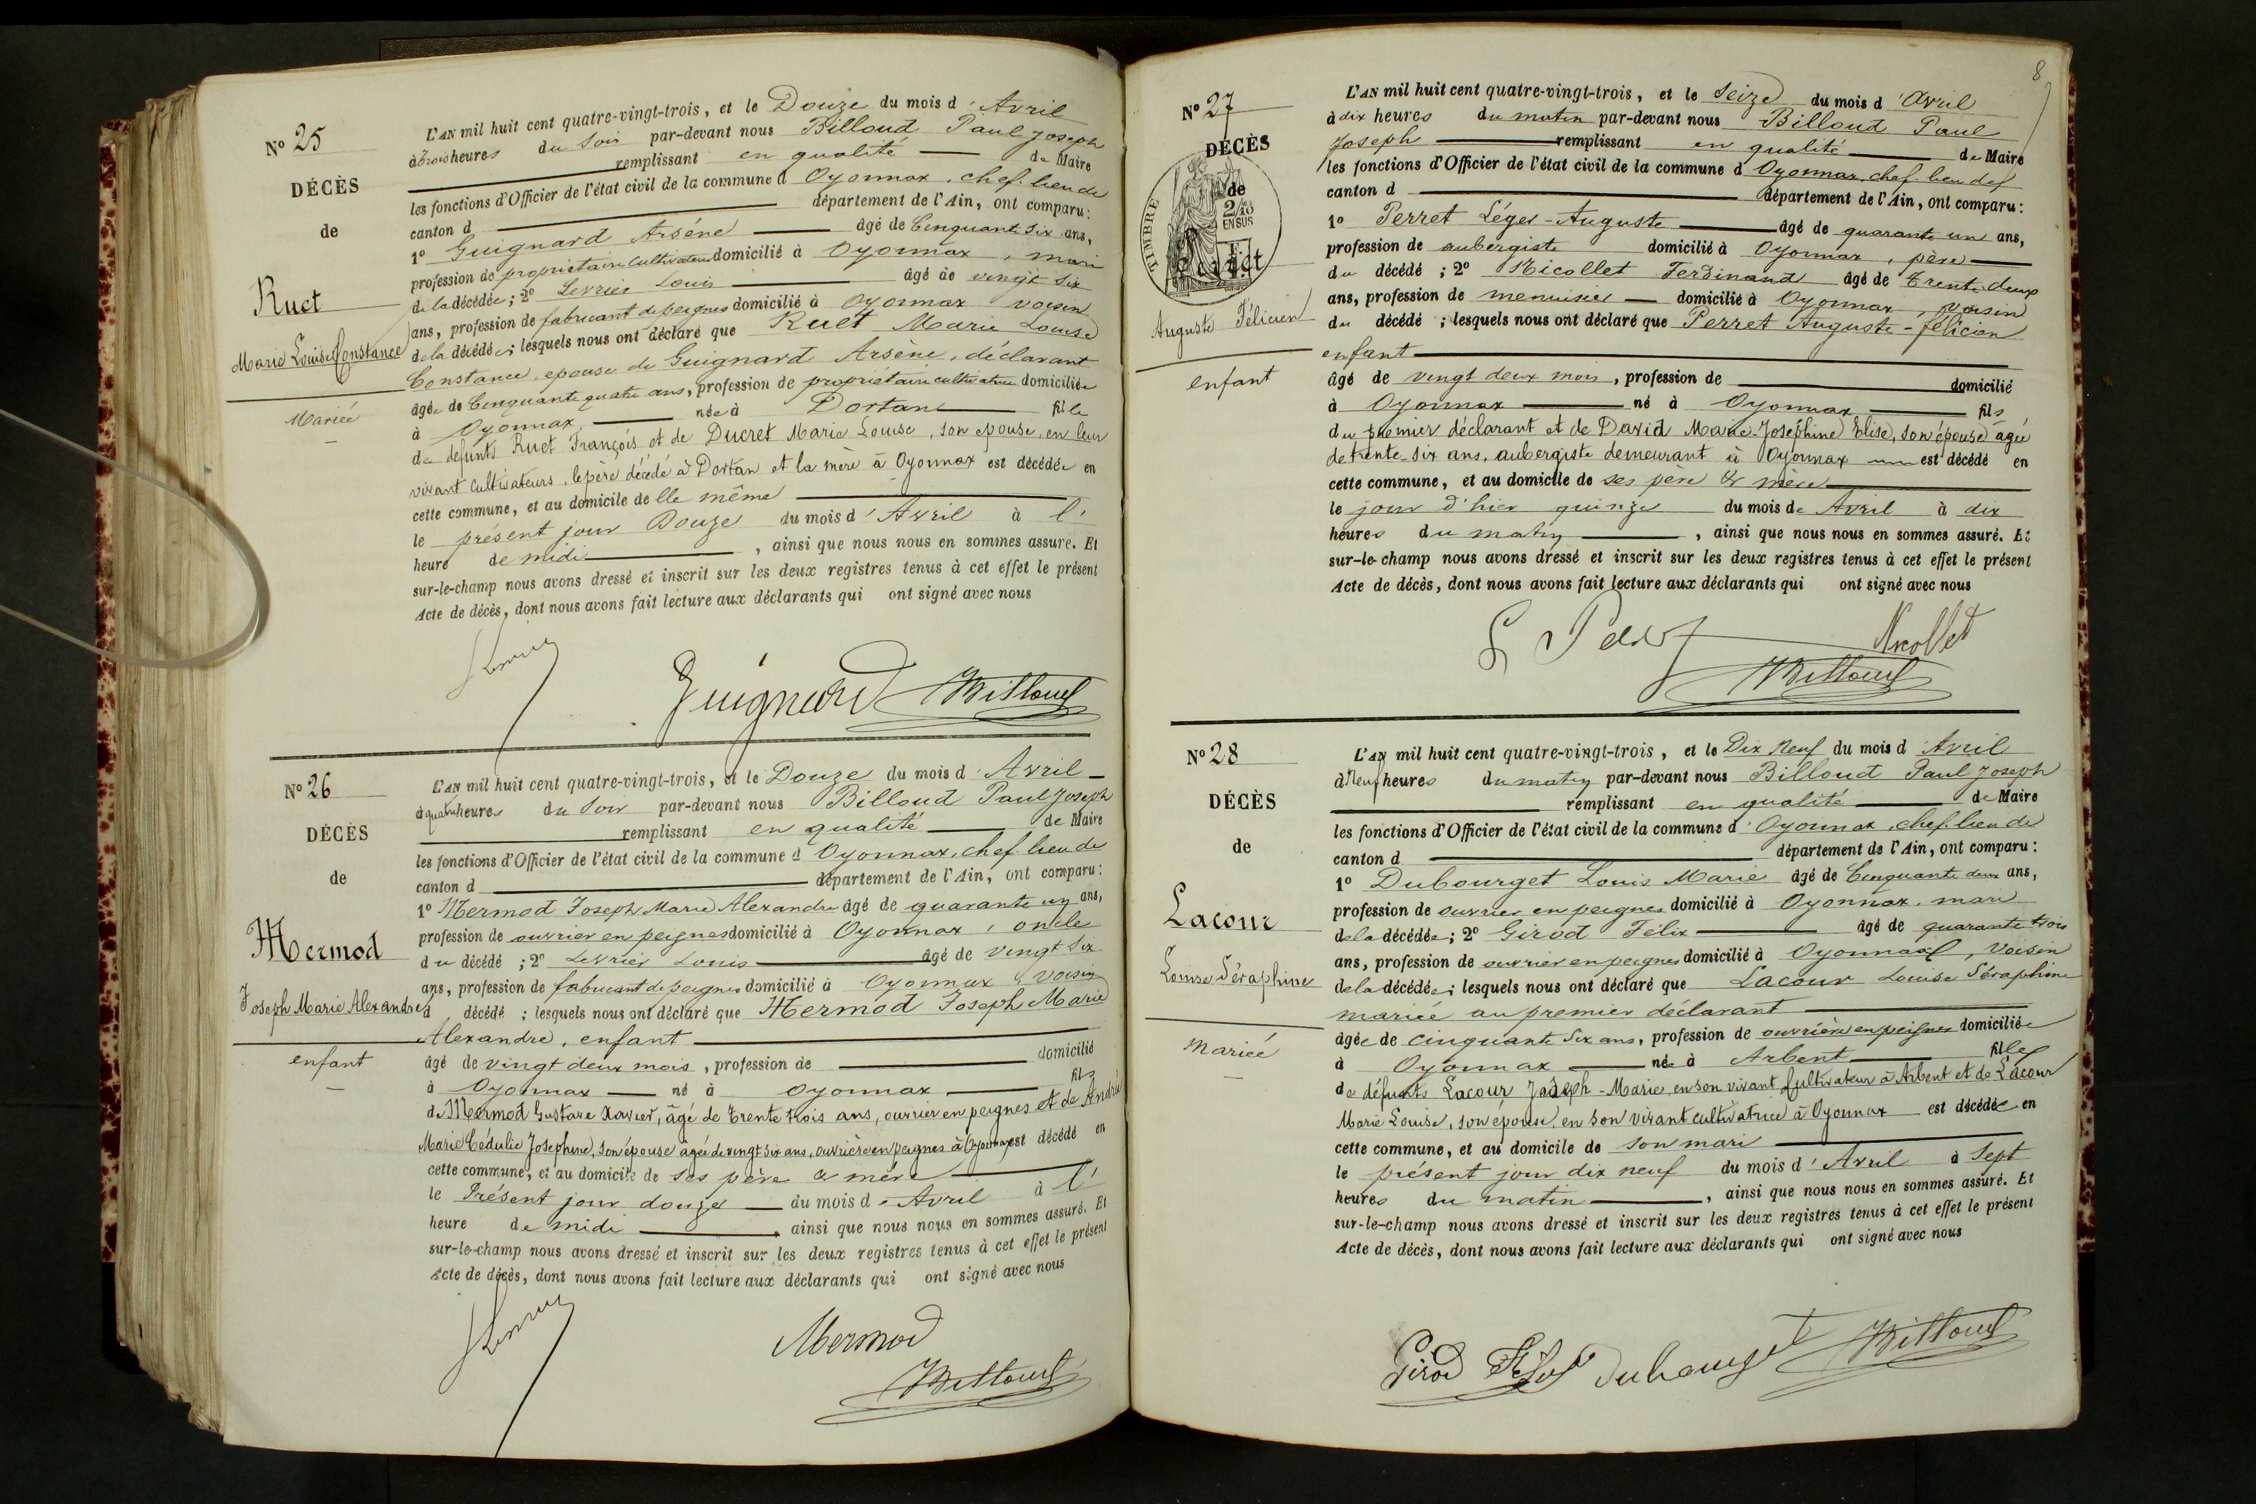 N° 25
DÉCÈS
de
Ruet
Marie Louise Constance
Mariée
L'AN mil huit cent quatre-vingt-trois, et le Douze du mois d'Avril
à trois heures du soir par-devant nous Billoud Paul Joseph
remplissant en qualité de Maire
les fonctions d'Officier de l'état civil de la commune d Oyonnax, chef-lieu de
canton d département de l'Ain, ont comparu:
1° Guignard Arsène âgé de Cinquante six ans,
profession de propriétaire cultivateur domicilié à Oyonnax, mari
de la décédée; 2° Levrier Louis âgé de vingt six
ans, profession de fabricant de peignes domicilié à Oyonnax voisin
de la décédée; lesquels nous ont déclaré que Ruet Marie Louise
Constance, epouse de Guignard Arsène, déclarant
âgée de Cinquante quatre ans, profession de propriétaire cultivatrice domiciliée
à Oyonnax, née à Dortan fille
de défunts Ruet François et de Ducret Marie Louise, son epouse, en leur
vivant cultivateurs, le père décédé à Dortan et la mère à Oyonnax est décédée en
cette commune, et au domicile de lle même
le présent jour Douze du mois d'Avril à l'
heure de midi, ainsi que nous nous en sommes assuré. Et
sur-le-champ nous avons dressé et inscrit sur les deux registres tenus à cet effet le présent
Acte de décès, dont nous avons fait lecture aux déclarants qui ont signé avec nous
Guignard Billoud
N° 26
DÉCÈS
de
Mermod
Joseph Marie Alexandre
enfant
L'AN mil huit cent quatre-vingt-trois, et le Douze du mois d'Avril
à quatre heures du soir par-devant nous Billoud Paul Joseph
remplissant en qualité de Maire
les fonctions d'Officier de l'état civil de la commune d Oyonnax, chef-lieu de
canton d département de l'Ain, ont comparu:
1° Mermod Joseph Marie Alexandre âgé de quarante un ans,
profession de ouvrier en peignes domicilié à Oyonnax, oncle
du décédé; 2° Levrier Louis âgé de vingt six
ans, profession de fabricant de peignes domicilié à Oyonnax voisin
d décédé; lesquels nous ont déclaré que Mermod Joseph Marie
Alexandre, enfant
âgé de vingt deux mois, profession de domicilié
à Oyonnax né à Oyonnax fils
de Mermod Gustave Xavier, âgé de trente trois ans, ouvrier en peignes et de André
Marie Cédulie Josephine, son épouse âgée de vingt six ans, ouvrière en peignes à Oyonnax est décédé en
cette commune, et au domicile de ses père & mère
le Présent jour douze du mois d'Avril à l'
heure de midi, ainsi que nous nous en sommes assuré. Et
sur-le-champ nous avons dressé et inscrit sur les deux registres tenus à cet effet le présent
Acte de décès, dont nous avons fait lecture aux déclarants qui ont signé avec nous
Mermod
Billoud
8
N° 27
DÉCÈS
de
Perret
Auguste Félicien
enfant
TIMBRE
2/10
EN SUS
L'AN mil huit cent quatre-vingt-trois, et le Seize du mois d'Avril
à dix heures du matin par-devant nous Billoud Paul
Joseph remplissant en qualité de Maire
les fonctions d'Officier de l'état civil de la commune d Oyonnax, chef-lieu de
canton d département de l'Ain, ont comparu:
1° Perret Léger-Auguste âgé de quarante un ans,
profession de aubergiste domicilié à Oyonnax, père
du décédé; 2° Nicollet Ferdinand âgé de trente deux
ans, profession de menuisier domicilié à Oyonnax, voisin
du décédé; lesquels nous ont déclaré que Perret Auguste-félicien
enfant
âgé de vingt deux mois, profession de domicilié
à Oyonnax né à Oyonnax fils
du premier déclarant et de David Marie-Joséphine Elise, son épouse âgée
de trente-six ans, aubergiste demeurant à Oyonnax est décédé en
cette commune, et au domicile de ses père & mère
le jour d'hier quinze du mois de Avril à dix
heures du matin, ainsi que nous nous en sommes assuré. Et
sur-le-champ nous avons dressé et inscrit sur les deux registres tenus à cet effet le présent
Acte de décès, dont nous avons fait lecture aux déclarants qui ont signé avec nous
L Perret Nicollet
Billoud
N° 28
DÉCÈS
de
Lacour
Louise Séraphine
Mariée
L'AN mil huit cent quatre-vingt-trois, et le Dix Neuf du mois d'Avril
à Neuf heures du matin par-devant nous Billoud Paul Joseph
remplissant en qualité de Maire
les fonctions d'Officier de l'état civil de la commune d'Oyonnax, chef-lieu de
canton d département de l'Ain, ont comparu:
1° Dubourget Louis Marie âgé de Cinquante deux ans,
profession de ouvrier en peignes domicilié à Oyonnax, mari
de la décédée; 2° Girod Félix âgé de quarante trois
ans, profession de ouvrier en peignes domicilié à Oyonnax, voisin
de la décédée; lesquels nous ont déclaré que Lacour Louise Séraphine
mariée au premier déclarant
âgée de cinquante six ans, profession de ouvrière en peignes domiciliée
à Oyonnax née à Arbent fille
de défunts Lacour Joseph-Marie, en son vivant cultivateur à Arbent et de Lacour
Marie Louise, son épouse, en son vivant cultivatrice à Oyonnax est décédée en
cette commune, et au domicile de son mari
le présent jour dix neuf du mois d'Avril à sept
heures du matin, ainsi que nous nous en sommes assuré. Et
sur-le-champ nous avons dressé et inscrit sur les deux registres tenus à cet effet le présent
Acte de décès, dont nous avons fait lecture aux déclarants qui ont signé avec nous
Girod Félix Dubourget Billoud